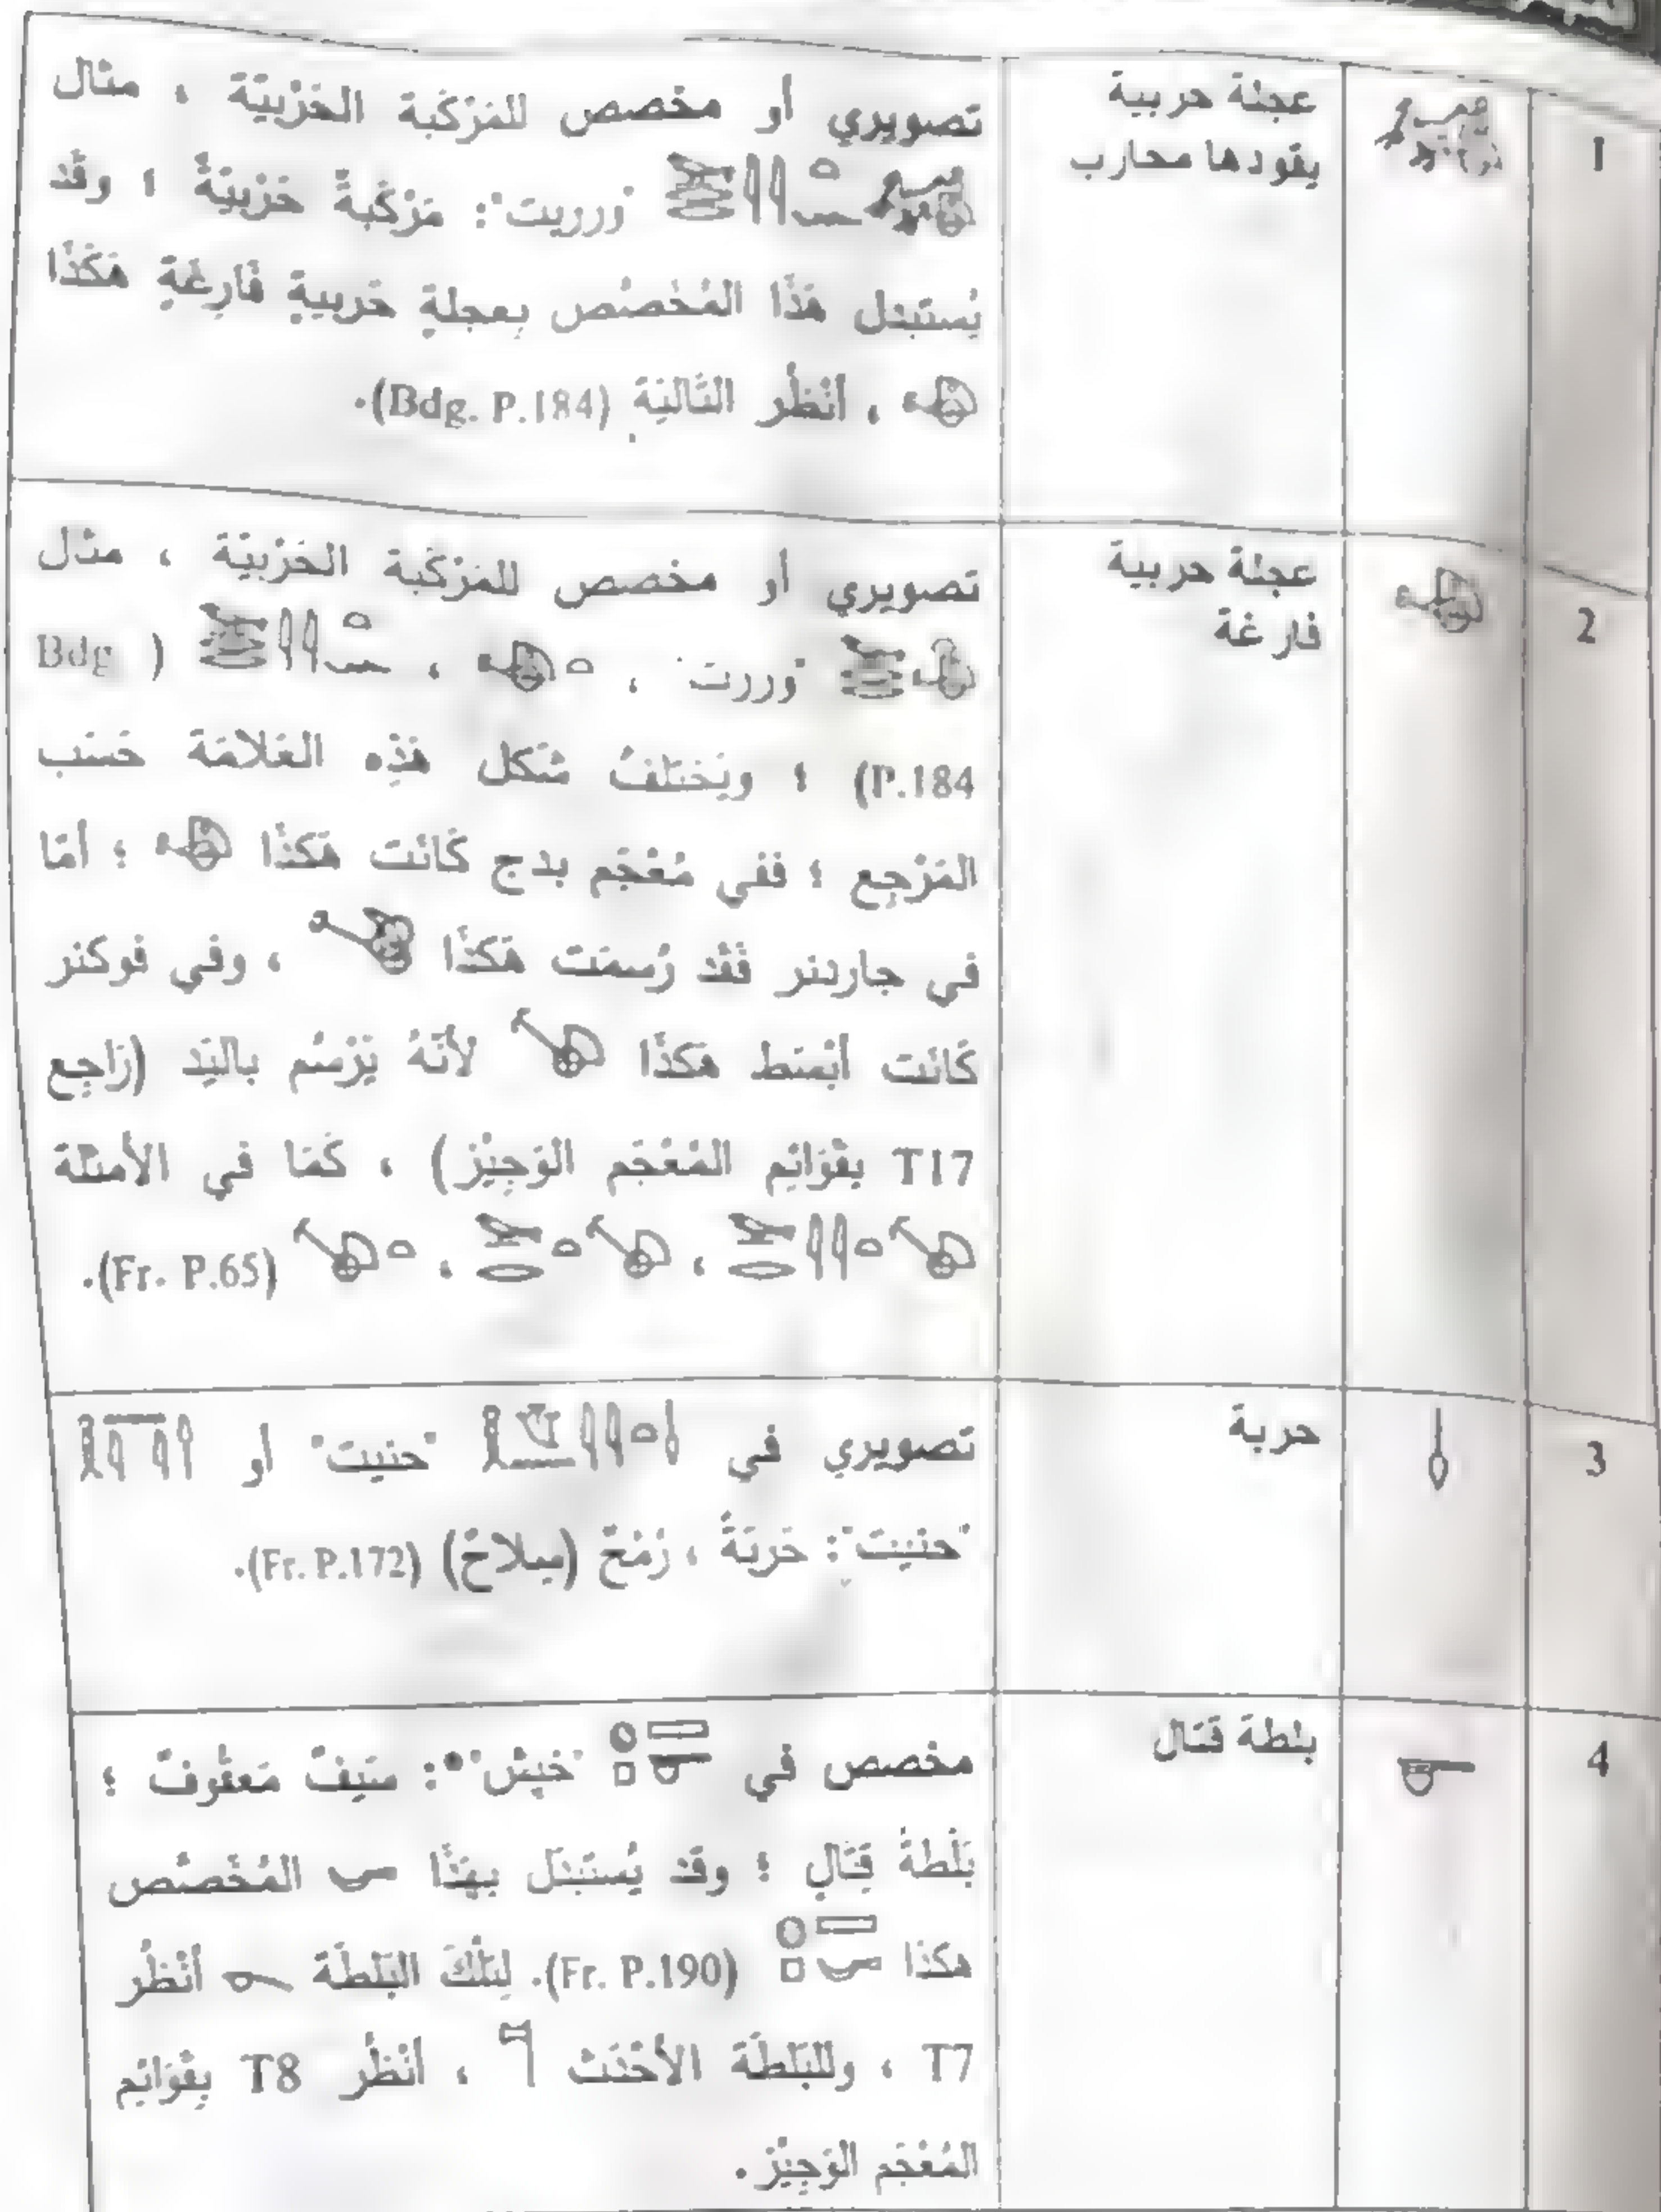 1
عجلة حربية
يقودها محارب
تصويري أو مخصص للمَرْكَبة الحَرْبيَّة ، مثال
"ورريت": مَرْكَبةً حَرْبيَّةً ؛ وقَد
يُستبدل هَذَا المُخَصَّص بِعجلةٍ حَربيةٍ فَارِغَةٍ هَكَذَا
، أنْظُر التَّاليَة (Bdg. P.184).
2
عجلة حربية
فارغة
تصويري أو مخصص للمَرْكَبة الحَرْبيَّة ، مثال
"وررت" ، ، ( Bdg
P.184) ؛ ويَختلفُ شَكل هَذِه العَلامَة حَسَب
المَرْجِع ؛ ففي مُعْجَم بدج كَانَت هَكذَا ؛ أمَّا
في جاردنر فَقَد رُسمَت هَكذَا ، وفي فوكنر
كَانَت أبْسَط هَكذَا لأنَّهُ يَرْسُم باليَد (رَاجِع
T17 بقَوَائِم المُعْجَم الوَجِيْز) ، كَمَا في الأمثلة
، ، (Fr. P.65).
3
حربة
تصويري في "حنيت" أو
"حنيت": حَربَةً ، رُمْحٌ (سِلاحٌ) (Fr. P.172).
4
بلطة قتال
مخصص في "خپش"•: سَيفٌ مَعقُوفٌ ؛
بَلْطةُ قِتَالٍ ؛ وقَد يُستَبدَل بِهَذَا المُخَصَّص
هكذا (Fr. P.190). لِتلْكَ البَلطَة أنْظُر
T7 ، وللبَلطَة الأحْدَث ، أنْظُر T8 بِقَوَائِم
المُعْجَم الوَجِيْز.